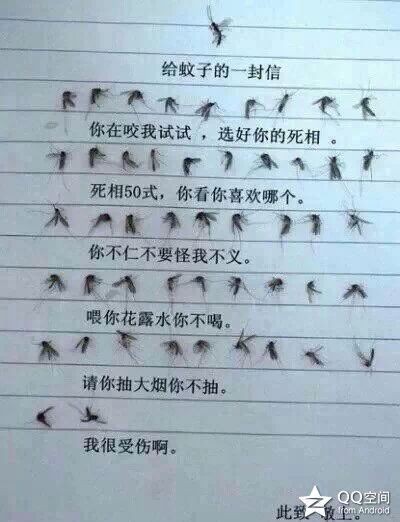 给蚊子的一封信
你在咬我试试，选好你的死相。
死相50式，你看你喜欢哪个。
你不仁不要怪我不义。
喂你花露水你不喝。
请你抽大烟你不抽。
我很受伤啊。
此致 敬上。
QQ空间
from Android